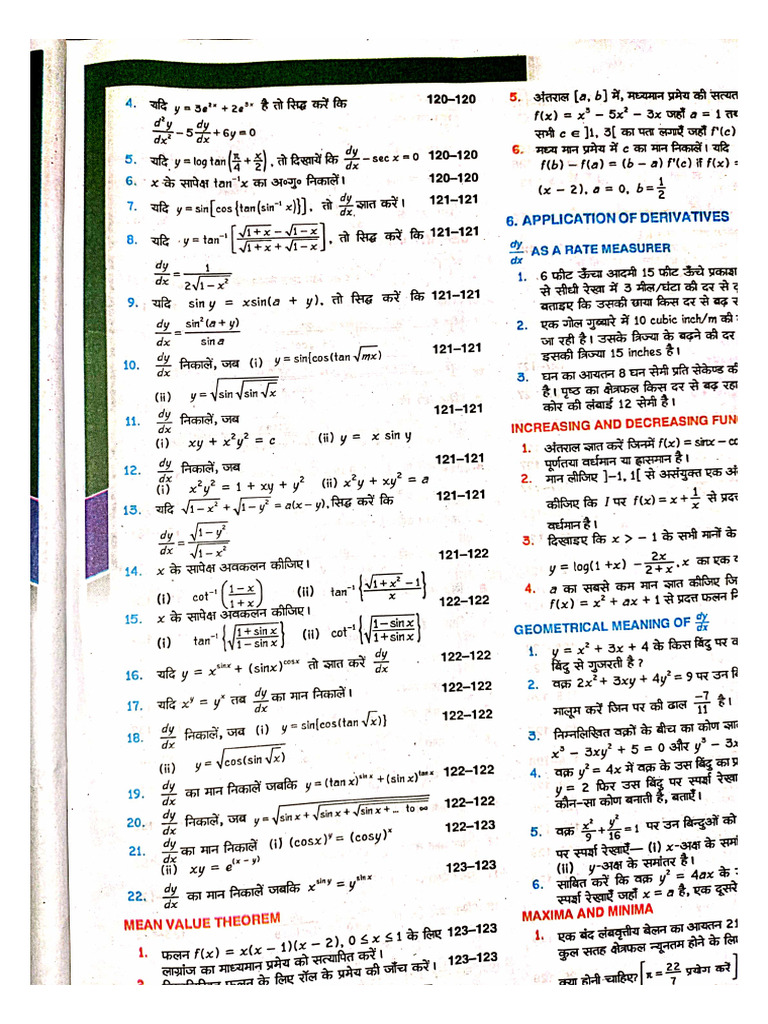 4. यदि y = 3e^{2x} + 2e^{3x} है तो सिद्ध करें कि 120–120
d²y/dx² – 5 dy/dx + 6y = 0
5. यदि y = log tan(π/4 + x/2), तो दिखायें कि dy/dx – sec x = 0 120–120
6. x के सापेक्ष tan⁻¹x का अ०गु० निकालें। 120–120
7. यदि y = sin[cos{tan(sin⁻¹ x)}], तो dy/dx, ज्ञात करें। 121–121
8. यदि y = tan⁻¹[(√(1+x) – √(1–x))/(√(1+x) + √(1–x))], तो सिद्ध करें कि 121–121
dy/dx = 1/(2√(1–x²))
9. यदि sin y = xsin(a + y), तो सिद्ध करें कि 121–121
dy/dx = sin²(a + y)/sin a
10. dy/dx निकालें, जब (i) y = sin{cos(tan √mx) 121–121
(ii) y = √(sin√(sin√x))
11. dy/dx निकालें, जब 121–121
(i) xy + x²y² = c (ii) y = x sin y
12. dy/dx निकालें, जब 121–121
(i) x²y² = 1 + xy + y² (ii) x²y + xy² = a
13. यदि √(1–x²) + √(1–y²) = a(x – y), सिद्ध करें कि 121–121
dy/dx = √(1–y²)/√(1–x²)
14. x के सापेक्ष अवकलन कीजिए। 121–122
(i) cot⁻¹((1–x)/(1+x)) (ii) tan⁻¹{(√(1+x²) –1)/x}
15. x के सापेक्ष अवकलन कीजिए। 122–122
(i) tan⁻¹{√((1+sin x)/(1–sin x))} (ii) cot⁻¹{√((1–sin x)/(1+sin x))}
16. यदि y = x^{sinx} + (sinx)^{cosx} तो ज्ञात करें dy/dx 122–122
17. यदि x^y = y^x तब dy/dx का मान निकालें। 122–122
18. dy/dx निकालें, जब (i) y = sin{cos(tan √x)} 122–122
(ii) y = √(cos(sin √x))
19. dy/dx का मान निकालें जबकि y = (tan x)^{sin x} + (sin x)^{tan x} 122–122
20. dy/dx निकालें, जब y = √(sin x + √(sin x + √(sin x + ... to ∞ 122–122
21. dy/dx का मान निकालें (i) (cosx)^y = (cosy)^x 122–123
(ii) xy = e^{(x – y)} 123–123
22. dy/dx का मान निकालें जबकि x^{siny} = y^{sinx}
MEAN VALUE THEOREM
1. फलन f(x) = x(x – 1)(x – 2), 0 ≤ x ≤ 1 के लिए 123–123
लाग्रांज का माध्यमान प्रमेय को सत्यापित करें।
फलन के लिए रॉल के प्रमेय की जाँच करें। 123–123
5. अंतराल [a, b] में, मध्यमान प्रमेय की
f(x) = x³ – 5x² – 3x जहाँ a = 1
सभी c ∈ ]1, 3[ का पता लगाएँ जहाँ f'(c)
6. मध्य मान प्रमेय में c का मान निकालें। यदि
f(b) – f(a) = (b – a) f'(c) if f(x) =
(x – 2), a = 0, b = 1/2
6. APPLICATION OF DERIVATIVES
dy/dx AS A RATE MEASURER
1. 6 फीट ऊँचा आदमी 15 फीट ऊँचे
से सीधी रेखा में 3 मील/घंटा की दर से
बताइए कि उसकी छाया किस दर से बढ़
2. एक गोल गुब्बारे में 10 cubic inch/m की
जा रही है। उसके त्रिज्या के बढ़ने की दर
इसकी त्रिज्या 15 inches है।
3. घन का आयतन 8 घन सेमी प्रति सेकेण्ड की
है। पृष्ठ का क्षेत्रफल किस दर से बढ़ रहा
कोर की लंबाई 12 सेमी है।
INCREASING AND DECREASING
1. अंतराल ज्ञात करें जिनमें f(x) = sinx –
पूर्णतया वर्धमान या ह्रासमान है।
2. मान लीजिए ]–1, 1[ से असंयुक्त एक
कीजिए कि I पर f(x) = x + 1/x से
वर्धमान है।
3. दिखाइए कि x > – 1 के सभी मानों के
y = log(1 + x) – 2x/(2 + x), x का एक
4. a का सबसे कम मान ज्ञात कीजिए
f(x) = x² + ax + 1 से प्रदत्त फलन
GEOMETRICAL MEANING OF dy/dx
1. y = x² + 3x + 4 के किस बिंदु पर
बिंदु से गुजरती है?
2. वक्र 2x² + 3xy + 4y² = 9 पर उन
मालूम करें जिन पर की ढाल –7/11 है।
3. निम्नलिखित वक्रों के बीच का कोण
x³ – 3xy² + 5 = 0 और
4. वक्र y² = 4x में वक्र के उस बिंदु का
y = 2 फिर उस बिंदु पर स्पर्श रेखा
कौन-सा कोण बनाती है, बताएँ।
5. वक्र x²/9 + y²/16 = 1 पर उन बिन्दुओं को
पर स्पर्श रेखाएँ— (i) x-अक्ष के
(ii) y-अक्ष के समांतर है।
6. साबित करें कि वक्र y² = 4ax के
स्पर्श रेखाएँ जहाँ x = a है, एक दूसरे
MAXIMA AND MINIMA
1. एक बंद लंबवृत्तीय बेलन का आयतन
कुल सतह क्षेत्रफल न्यूनतम होने के
क्या होनी चाहिए? [π = 22/7 प्रयोग करें]